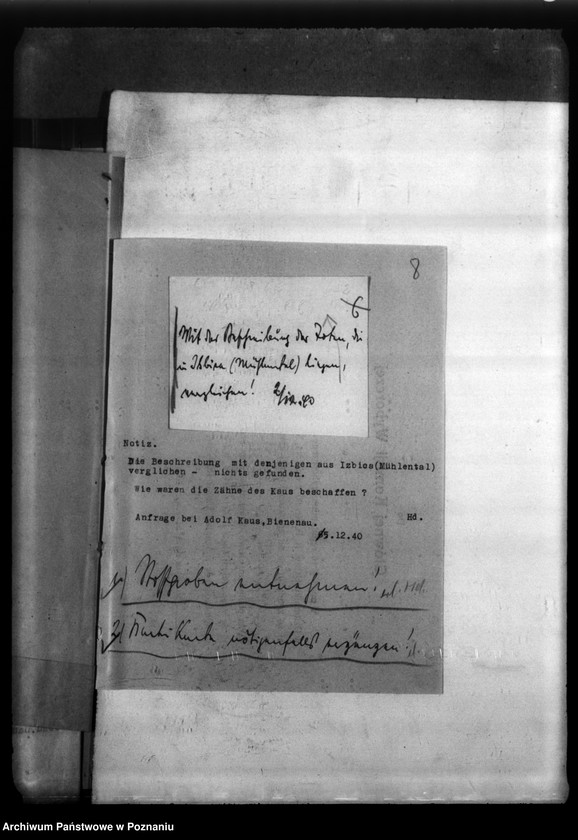 8
6
Mit der Beschreibung der Toten, die
in Izbica (Mühlental) liegen,
vergleichen! 2/12.40
Notiz.
Die Beschreibung mit demjenigen aus Izbica(Mühlental)
verglichen - nichts gefunden.
Wie waren die Zähne des Kaus beschaffen ?
Anfrage bei Adolf Kaus,Bienenau. Hd.
5.12.40
1) Stoffproben entnehmen!
2) Kartei Karte nötigenfalls ergänzen!
Archiwum Państwowe w Poznaniu